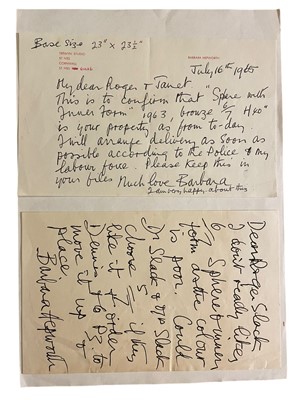 Base Size 23" x 23½"
BARBARA HEPWORTH
July 16th 1965
My dear Roger & Janet
This is to confirm that "Sphere with
Inner Form" 1963, bronze 2/7 H40"
is your property as from to-day.
I will arrange delivery as soon as
possible according to the Police & my
labour force. Please keep this in
your files Much love Barbara
I am very happy about this
Dear Roger Slack
I don't really like
6/7 Sphere & inner
form as the colour
is poor. Could
Dr Slack & Mrs Slack
choose 5 if they
like it & order
Dennis to
move it up to
place
Barbara Hepworth